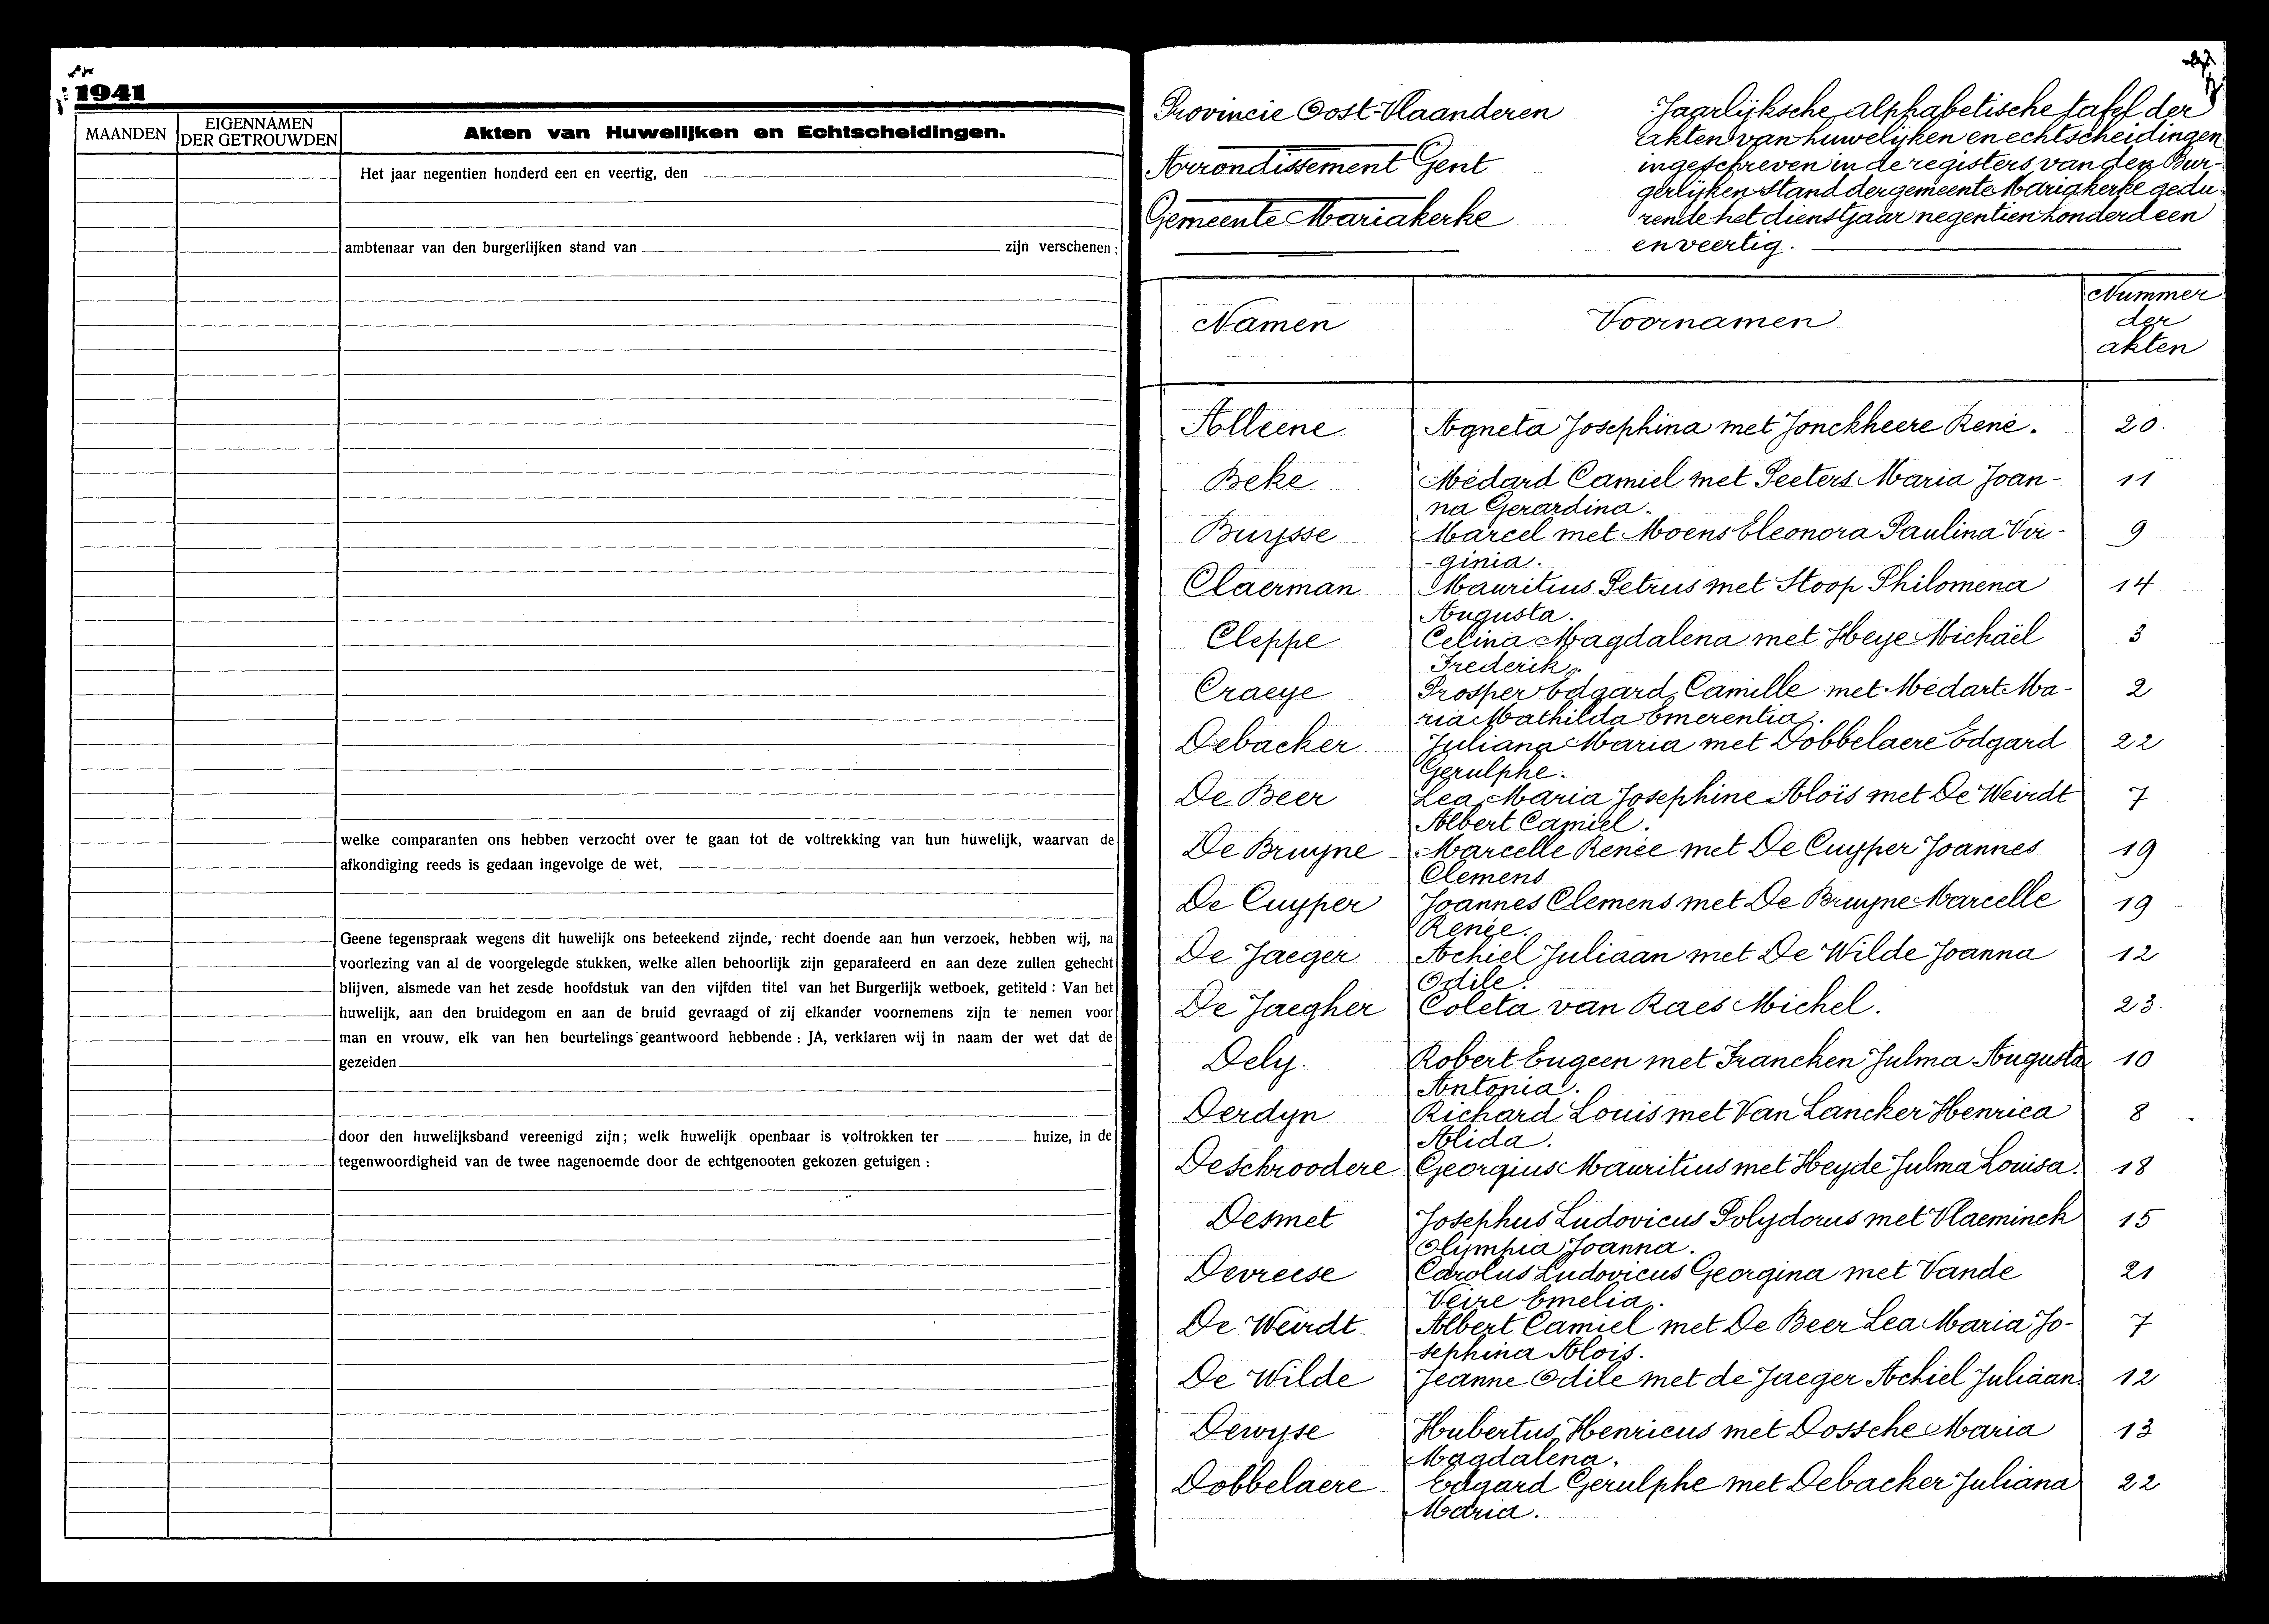 1941
MAANDEN
EIGENNAMEN
DER GETROUWDEN
Akten van Huwelijken en Echtscheidingen.
Het jaar negentien honderd een en veertig, den
ambtenaar van den burgerlijken stand van zijn verschenen:
welke comparanten ons hebben verzocht over te gaan tot de voltrekking van hun huwelijk, waarvan de
afkondiging reeds is gedaan ingevolge de wet,
Geene tegenspraak wegens dit huwelijk ons beteekend zijnde, recht doende aan hun verzoek, hebben wij, na
voorlezing van al de voorgelegde stukken, welke allen behoorlijk zijn geparafeerd en aan deze zullen gehecht
blijven, alsmede van het zesde hoofdstuk van den vijfden titel van het Burgerlijk wetboek, getiteld: Van het
huwelijk, aan den bruidegom en aan de bruid gevraagd of zij elkander voornemens zijn te nemen voor
man en vrouw, elk van hen beurtelings geantwoord hebbende: JA, verklaren wij in naam der wet dat de
gezeiden
door den huwelijksband vereenigd zijn; welk huwelijk openbaar is voltrokken ter huize, in de
tegenwoordigheid van de twee nagenoemde door de echtgenooten gekozen getuigen:
Provincie Oost-Vlaanderen
Arrondissement Gent
Gemeente Mariakerke
Jaarlijksche alphabetische tafel der
akten van huwelijken en echtscheidingen
ingeschreven in de registers van den Bur-
gerlijken Stand der gemeente Mariakerke gedu-
rende het dienstjaar negentien honderd een
en veertig.
Namen Voornamen Nummer
der
akten
Alleene Agneta Josephina met Jonckheere René. 20.
Beke Médard Camiel met Peeters Maria Joan- 11
na Gerardina.
Buysse Marcel met Moens Eleonora Paulina Vir- 9
-ginia.
Claerman Mauritius Petrus met Stoop Philomena 14
Augusta.
Cleppe Celina Magdalena met Heye Michaël 3
Frederik.
Craeye Prosper Edgard Camille met Médart Ma- 2
ria Mathilda Emerentia.
Debacker Juliana Maria met Dobbelaere Edgard 22
Gerulphe.
De Beer Lea Maria Josephine Aloïs met De Weirdt 7
Albert Camiel.
De Bruyne Marcelle Renée met De Cuyper Joannes 19
Clemens
De Cuyper Joannes Clemens met De Bruyne Marcelle 19
Renée.
De Jaeger Achiel Juliaan met De Wilde Joanna 12
Odile.
De Jaegher Coleta van Raes Michel. 23.
Dely. Robert Eugeen met Francken Julma Augusta 10
Antonia.
Derdyn Richard Louis met Van Lancker Henrica 8
Alida.
Deschroodere Georgius Mauritius met Heyde Julma Louisa. 18
Desmet Josephus Ludovicus Polydorus met Vlaeminck 15
Olympia Joanna.
Devreese Carolus Ludovicus Georgina met Vande 21
Veire Emelia.
De Weirdt Albert Camiel met De Beer Lea Maria Jo- 7
sephina Alois.
De Wilde Jeanne Odile met de Jaeger Achiel Juliaan. 12
Dewyse Hubertus Henricus met Dossche Maria 13
Magdalena.
Dobbelaere Edgard Gerulphe met Debacker Juliana 22
Maria.